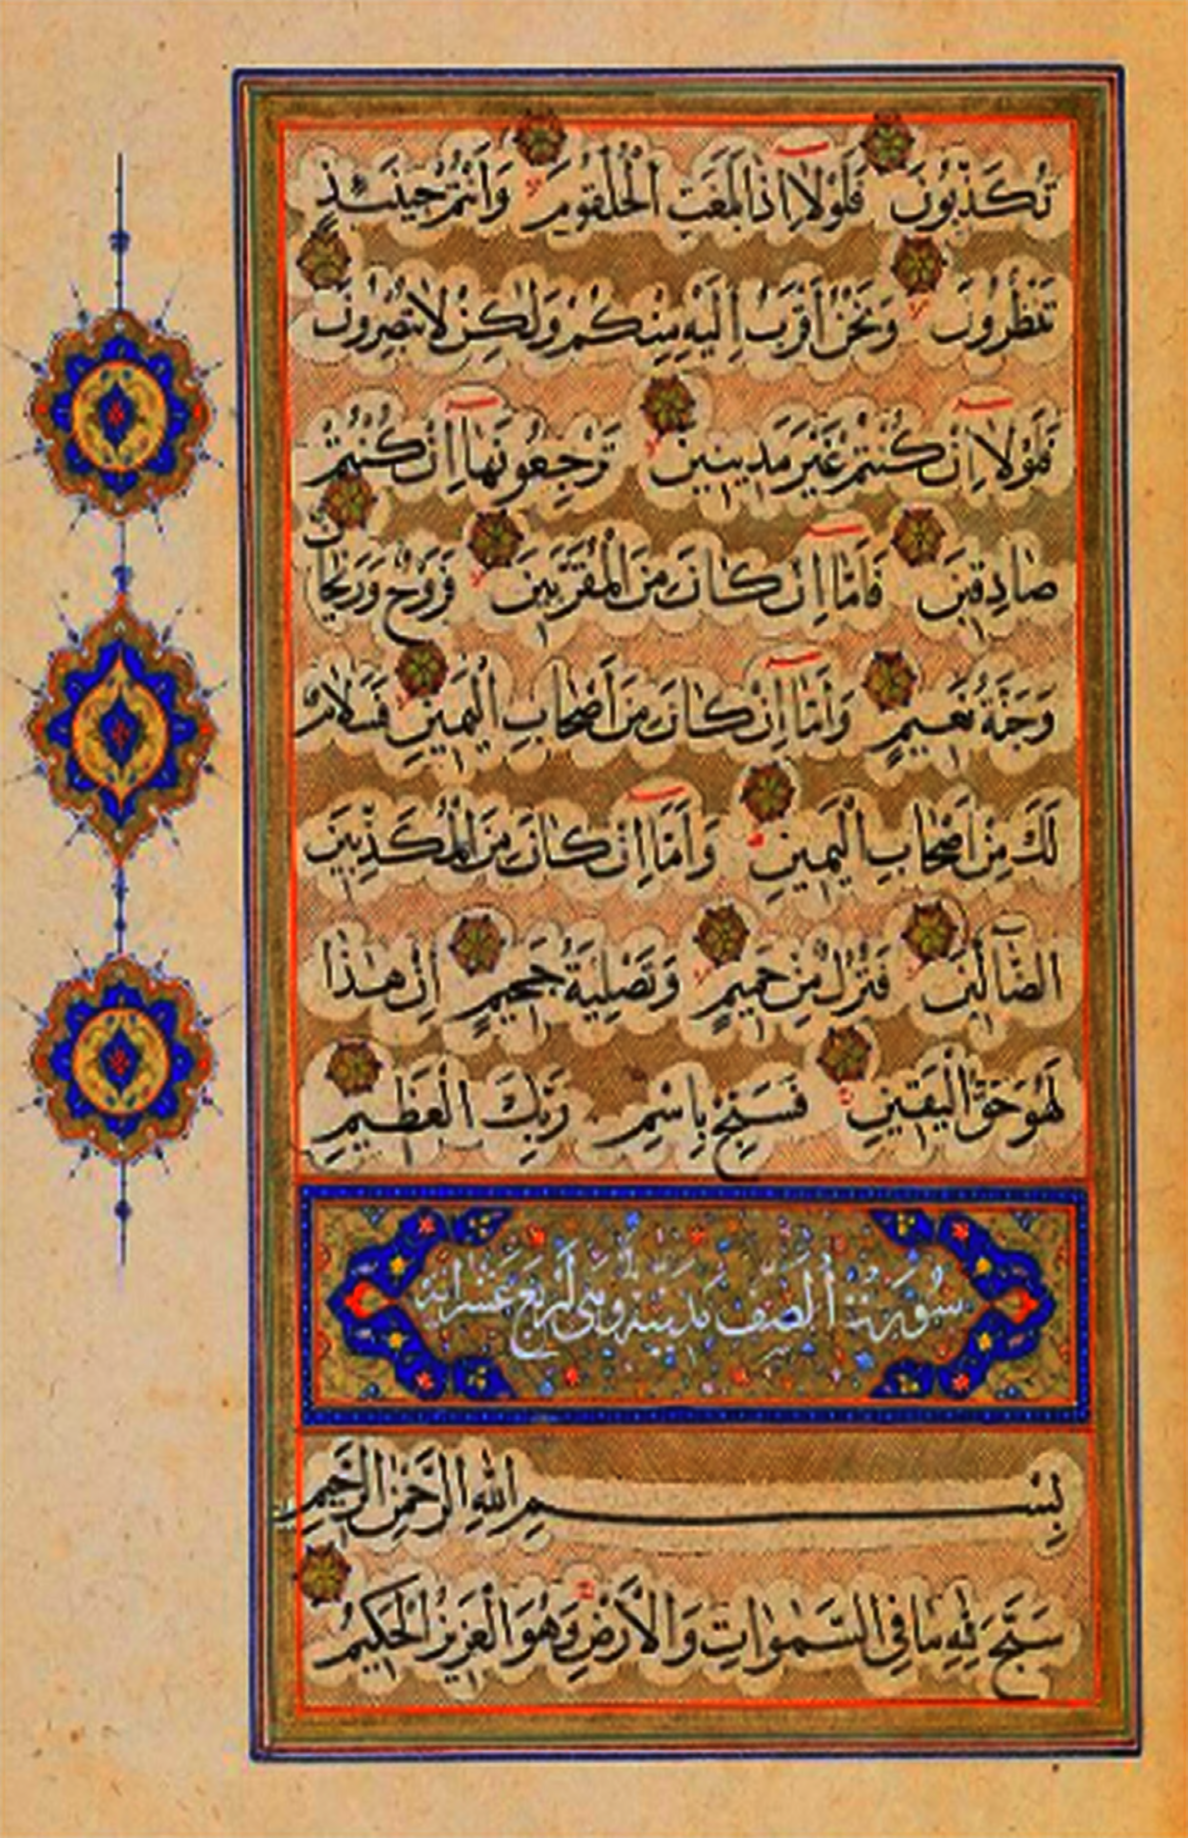 تُكَذِّبُونَ فَلَوْلَا اِذَا بَلَغَتِ الْحُلْقُومَ وَاَنْتُمْ حِينَئِذٍ
تَنْظُرُونَ وَنَحْنُ اَقْرَبُ اِلَيْهِ مِنْكُمْ وَلٰكِنْ لَا تُبْصِرُونَ
فَلَوْلَا اِنْ كُنْتُمْ غَيْرَ مَدِينِينَ تَرْجِعُونَهَا اِنْ كُنْتُمْ
صَادِقِينَ فَاَمَّا اِنْ كَانَ مِنَ الْمُقَرَّبِينَ فَرَوْحٌ وَرَيْحَانٌ
وَجَنَّةُ نَعِيمٍ وَاَمَّا اِنْ كَانَ مِنْ اَصْحَابِ الْيَمِينِ فَسَلَامٌ
لَكَ مِنْ اَصْحَابِ الْيَمِينِ وَاَمَّا اِنْ كَانَ مِنَ الْمُكَذِّبِينَ
الضَّالِّينَ فَنُزُلٌ مِنْ حَمِيمٍ وَتَصْلِيَةُ جَحِيمٍ اِنَّ هٰذَا
لَهُوَ حَقُّ الْيَقِينِ فَسَبِّحْ بِاسْمِ رَبِّكَ الْعَظِيمِ
سُورَةُ الصَّفِّ مَدَنِيَّةٌ وَهِيَ اَرْبَعَ عَشَرَ اٰيَة
بِسْمِ اللّٰهِ الرَّحْمٰنِ الرَّحِيمِ
سَبَّحَ لِلّٰهِ مَا فِي السَّمٰوَاتِ وَالْاَرْضِ وَهُوَ الْعَزِيزُ الْحَكِيمُ